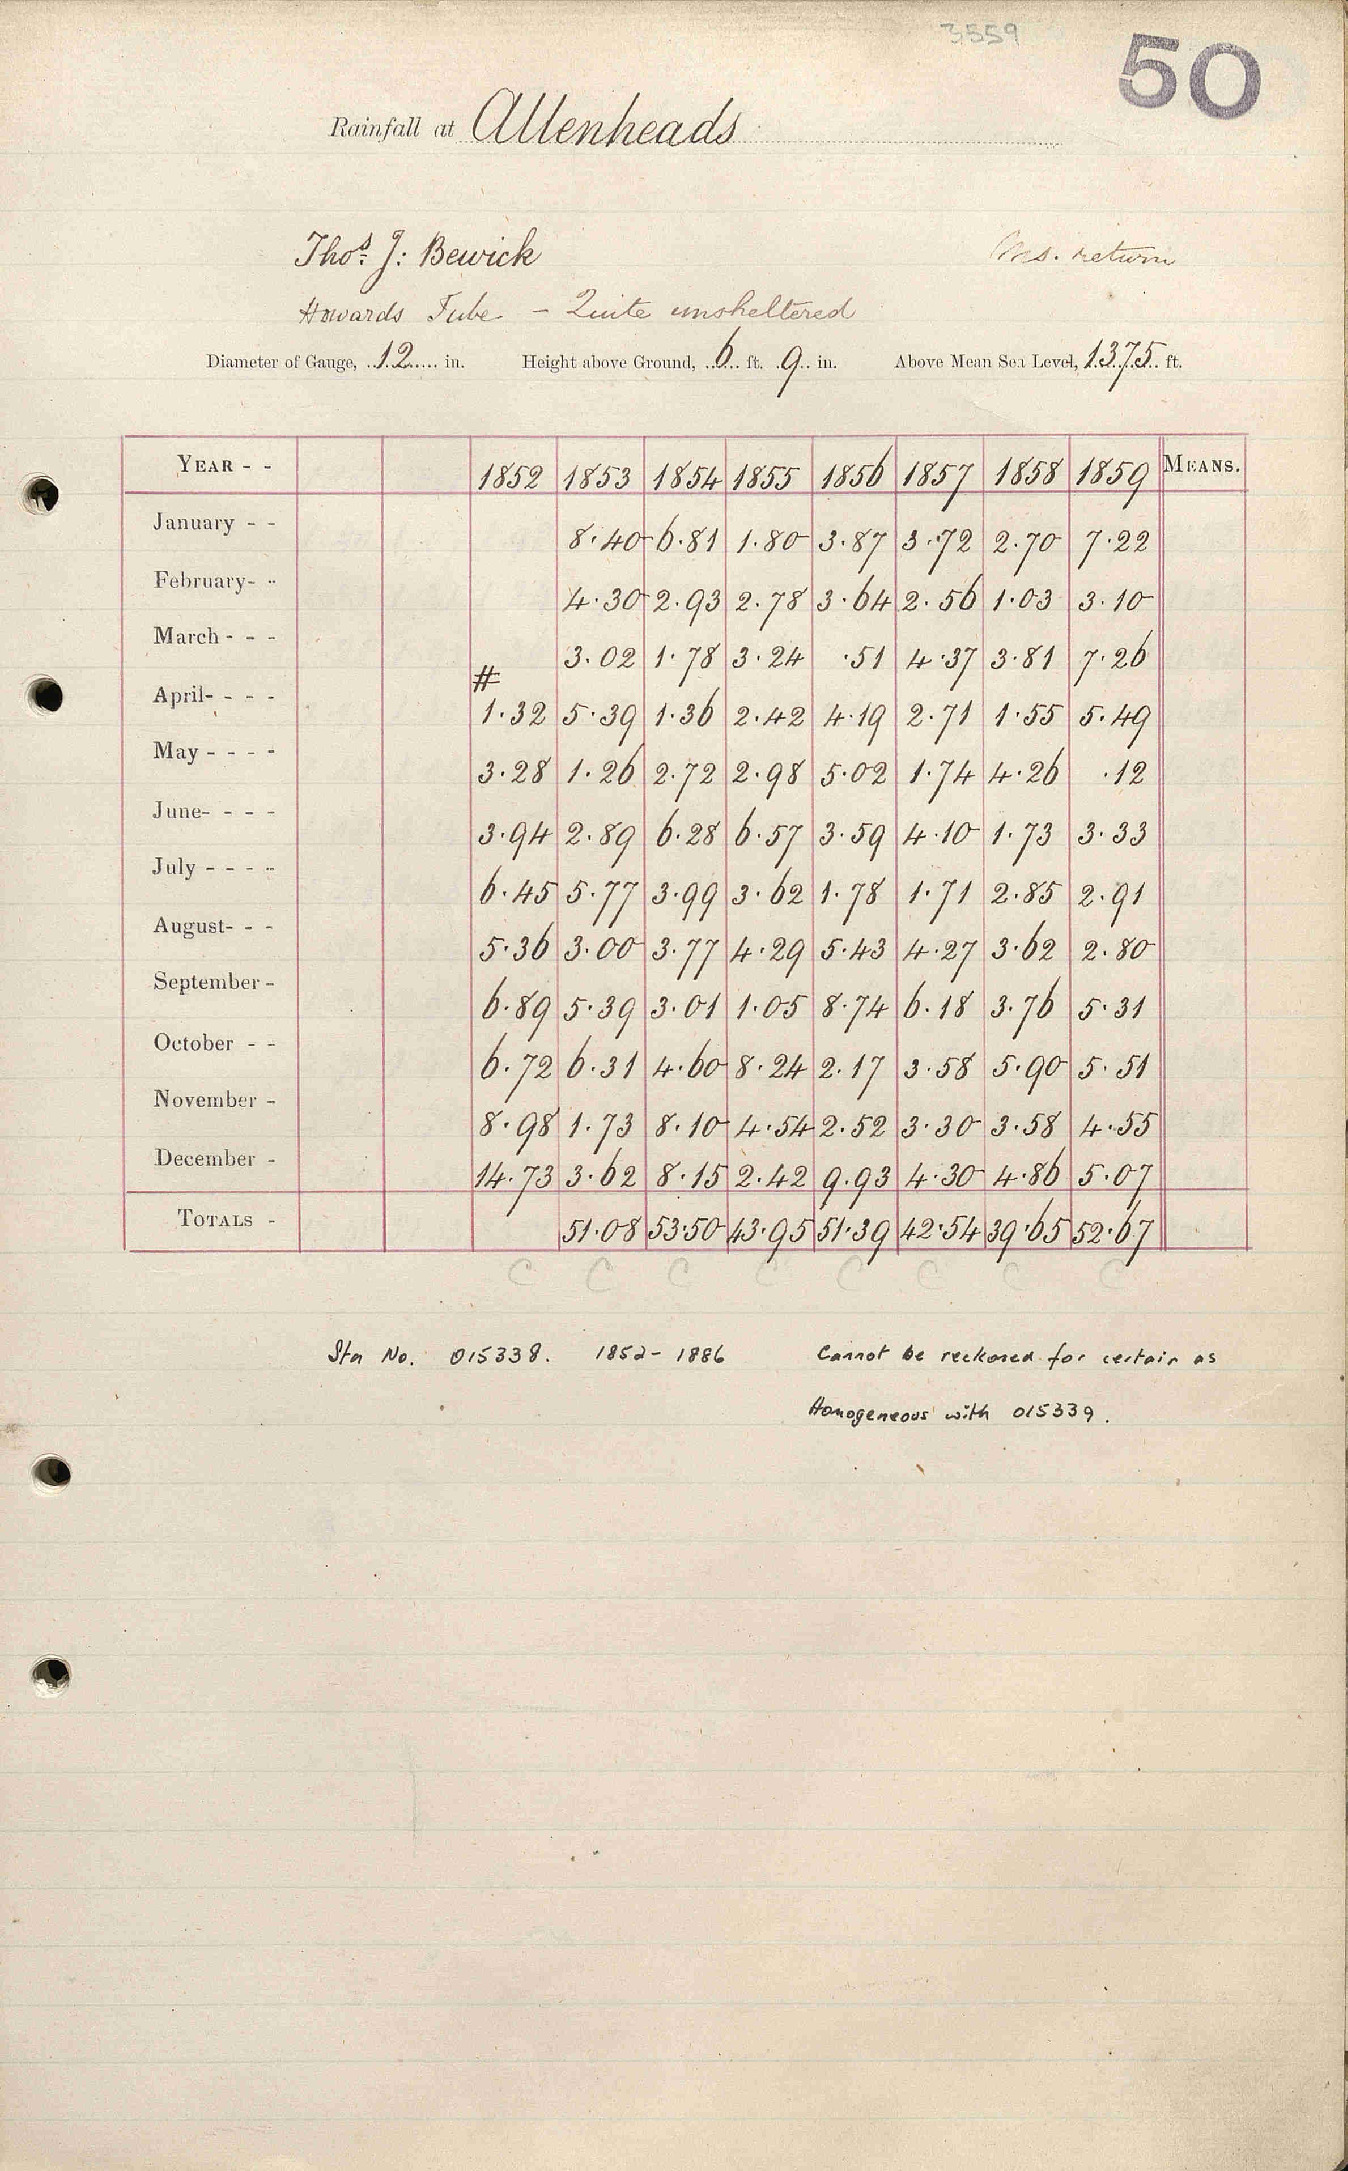 3559
50
Rainfall at Allenheads
Thos. J: Bewick
return
Howards Tube - Quite unsheltered
Diameter of Gauge, 12 in. Height above Ground, 6 ft. 9 in. Above Mean Sea Level, 1375 ft.
YEAR - - 1852 1853 1854 1855 1856 1857 1858 1859 MEANS.
January - - 8.40 6.81 1.80 3.87 3.72 2.70 7.22
February- - 4.30 2.93 2.78 3.64 2.56 1.03 3.10
March - - - 3.02 1.78 3.24 .51 4.37 3.81 7.26
#
April- - - - 1.32 5.39 1.36 2.42 4.19 2.71 1.55 5.49
May - - - - 3.28 1.26 2.72 2.98 5.02 1.74 4.26 .12
June- - - - 3.94 2.89 6.28 6.57 3.59 4.10 1.73 3.33
July - - - - 6.45 5.77 3.99 3.62 1.78 1.71 2.85 2.91
August- - - 5.36 3.00 3.77 4.29 5.43 4.27 3.62 2.80
September - 6.89 5.39 3.01 1.05 8.74 6.18 3.76 5.31
October - - 6.72 6.31 4.60 8.24 2.17 3.58 5.90 5.51
November - 8.98 1.73 8.10 4.54 2.52 3.30 3.58 4.55
December - 14.73 3.62 8.15 2.42 9.93 4.30 4.86 5.07
TOTALS - 51.08 53.50 43.95 51.39 42.54 39.65 52.67
C C C C C C C C
Stn No. 015338. 1852 - 1886 Cannot be reckoned for certain as
Homogeneous with 015339.